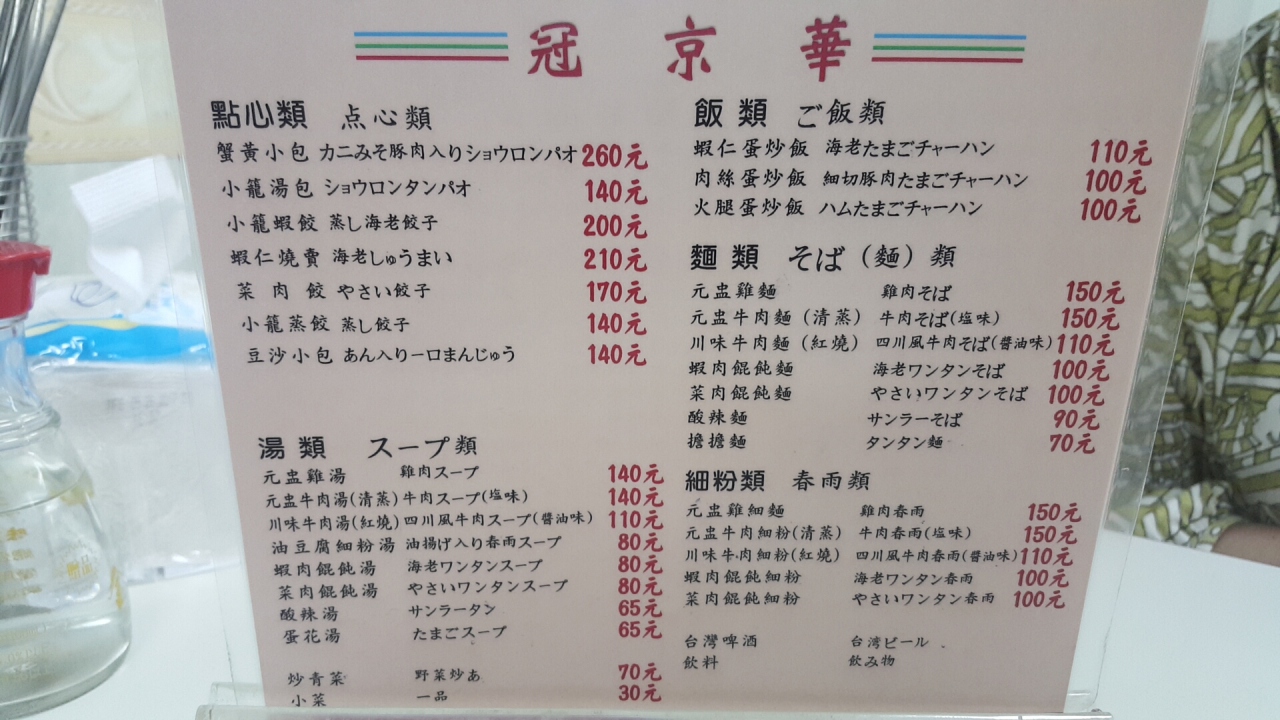 冠京華
點心類 点心類
蟹黃小包 カニみそ豚肉入りショウロンパオ 260元
小籠湯包 ショウロンタンパオ 140元
小籠蝦餃 蒸し海老餃子 200元
蝦仁燒賣 海老しゅうまい 210元
菜肉餃 やさい餃子 170元
小籠蒸餃 蒸し餃子 140元
豆沙小包 あん入り一口まんじゅう 140元
湯類 スープ類
元盅雞湯 雞肉スープ 140元
元盅牛肉湯(清蒸) 牛肉スープ(塩味) 140元
川味牛肉湯(紅燒) 四川風牛肉スープ(醬油味) 110元
油豆腐細粉湯 油揚げ入り春雨スープ 80元
蝦肉餛飩湯 海老ワンタンスープ 80元
菜肉餛飩湯 やさいワンタンスープ 80元
酸辣湯 サンラータン 65元
蛋花湯 たまごスープ 65元
炒青菜 野菜炒あ 70元
小菜 一品 30元
飯類 ご飯類
蝦仁蛋炒飯 海老たまごチャーハン 110元
肉絲蛋炒飯 細切豚肉たまごチャーハン 100元
火腿蛋炒飯 ハムたまごチャーハン 100元
麵類 そば(麵)類
元盅雞麵 雞肉そば 150元
元盅牛肉麵(清蒸) 牛肉そば(塩味) 150元
川味牛肉麵(紅燒) 四川風牛肉そば(醬油味) 110元
蝦肉餛飩麵 海老ワンタンそば 100元
菜肉餛飩麵 やさいワンタンそば 100元
酸辣麵 サンラーそば 90元
擔擔麵 タンタン麵 70元
細粉類 春雨類
元盅雞細麵 雞肉春雨 150元
元盅牛肉細粉(清蒸) 牛肉春雨(塩味) 150元
川味牛肉細粉(紅燒) 四川風牛肉春雨(醬油味) 110元
蝦肉餛飩細粉 海老ワンタン春雨 100元
菜肉餛飩細粉 やさいワンタン春雨 100元
台灣啤酒 台湾ビール
飲料 飲み物